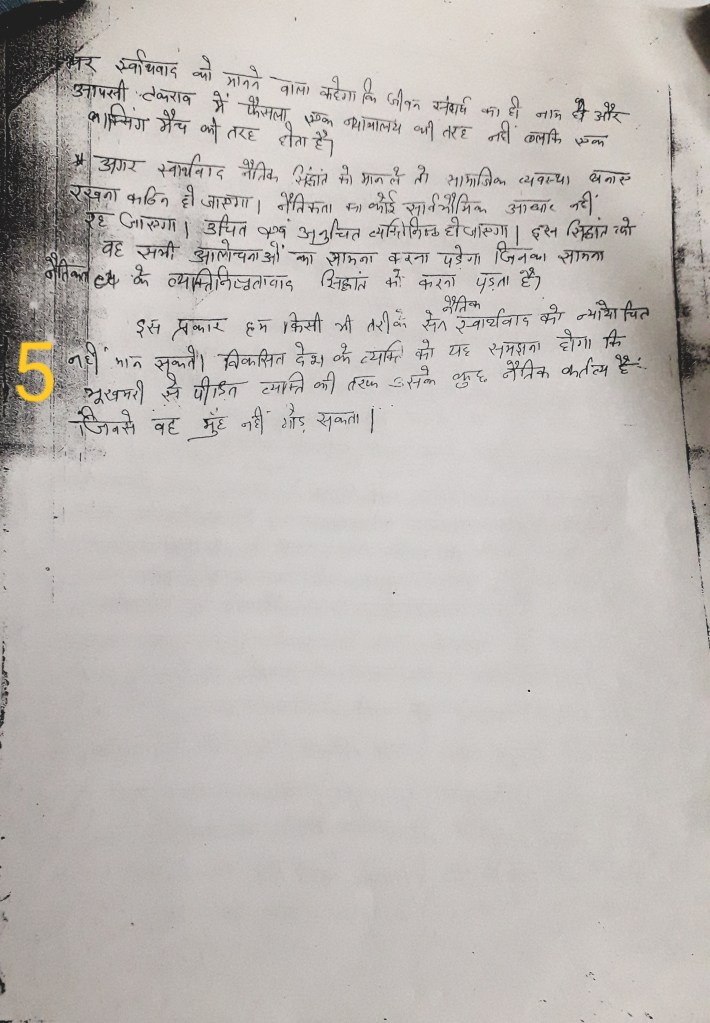 पर स्वार्थवाद को मानने वाला कहेगा कि जीवन संघर्ष का ही नाम है और
आपसी टकराव में फैसला एक न्यायालय की तरह नहीं बल्कि एक
बाक्सिंग मैच की तरह होता है।
* अगर स्वार्थवाद नैतिक सिद्धांत को मान ले तो सामाजिक व्यवस्था बनाए
रखना कठिन हो जाएगा। नैतिकता का कोई सार्वभौमिक आधार नहीं
रह जाएगा। उचित एवं अनुचित व्यक्तिनिष्ठ हो जाएगा। इस सिद्धांत को
वह सभी आलोचनाओं का सामना करना पड़ेगा जिनका सामना
नैतिकता के व्यक्तिनिष्ठतावाद सिद्धांत को करना पड़ता है।
इस प्रकार हम किसी भी तरीके से नैतिक स्वार्थवाद को न्यायोचित
नहीं मान सकते। विकसित देश के व्यक्ति को यह समझना होगा कि
5
भूखमरी से पीड़ित व्यक्ति की तरफ उसके कुछ नैतिक कर्तव्य हैं
जिनसे वह मुँह नहीं मोड़ सकता।